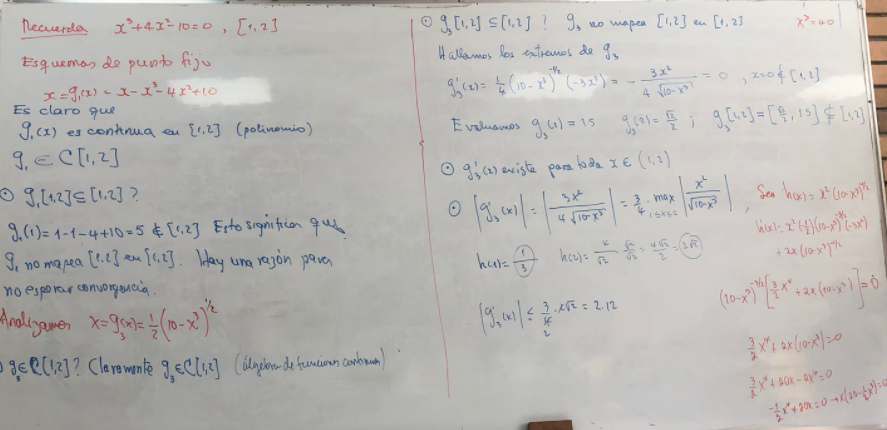 Recuerda x³+4x²-10=0, [1,2]
Esquemas de punto fijo
x=g₁(x)= x-x³-4x²+10
Es claro que
g₁(x) es continua en [1,2] (polinomio)
g₁ ∈ C[1,2]
⊙ g₁[1,2]⊆[1,2]?
g₁(1)=1-1-4+10=5 ∉ [1,2] Esto significa que
g₁ no mapea [1,2] en [1,2]. Hay una razón para
no esperar convergencia.
Analizamos x=g₃(x)=½(10-x³)^1/2
g₃∈C[1,2]? Claramente g₃∈C[1,2] (álgebra de funciones continuas)
⊙ g₃[1,2]⊆[1,2]? g₃ no mapea [1,2] en [1,2]
Hallamos los extremos de g₃
g₃'(x)=¼(10-x³)^-1/2(-3x²)= - 3x²/(4√(10-x³)) =0, x=0∉[1,2]
Evaluamos g₃(1)=1.5 g₃(2)=√2/2; g₃[1,2]=[√2/2, 1.5]⊈[1,2]
⊙ g₃'(x) existe para toda x∈(1,2)
⊙ |g₃'(x)| = |3x²/(4√(10-x³))| = 3/4 · max 1≤x≤2 |x²/√(10-x³)|
h(1)=1/3 h(2)=4/√2 √2/√2 = 4√2/2 = 2√2
|g₃'(x)| ≤ 3/4 · 2√2 = 2.12
2
x³=40
Sea h(x)=x²(10-x³)^-1/2
h'(x)=x²(-½)(10-x³)^-3/2(-3x²)
+2x(10-x³)^-1/2
(10-x³)^-3/2[3/2 x⁴+2x(10-x³)]=0
3/2 x⁴+2x(10-x³)=0
3/2 x⁴+20x-2x⁴=0
-½x⁴+20x=0→x(20-½x³)=0